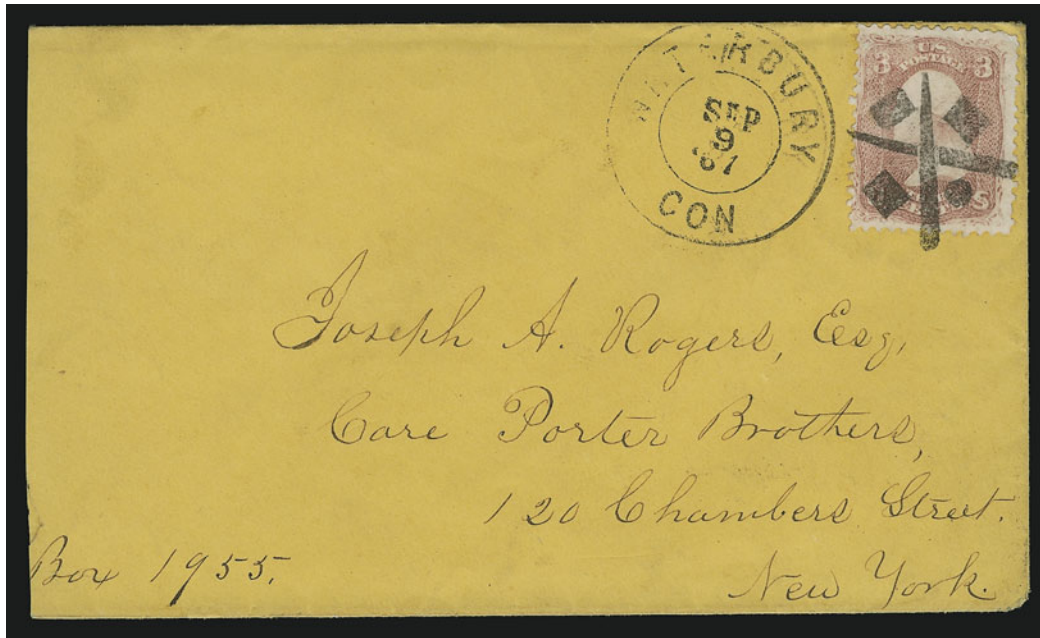 WATERBURY
SEP
9
'67
CON
U.S.
POSTAGE
3 3
Joseph A. Rogers, Esq,
Care Porter Brothers,
120 Chambers Street.
Box 1955.
New York.